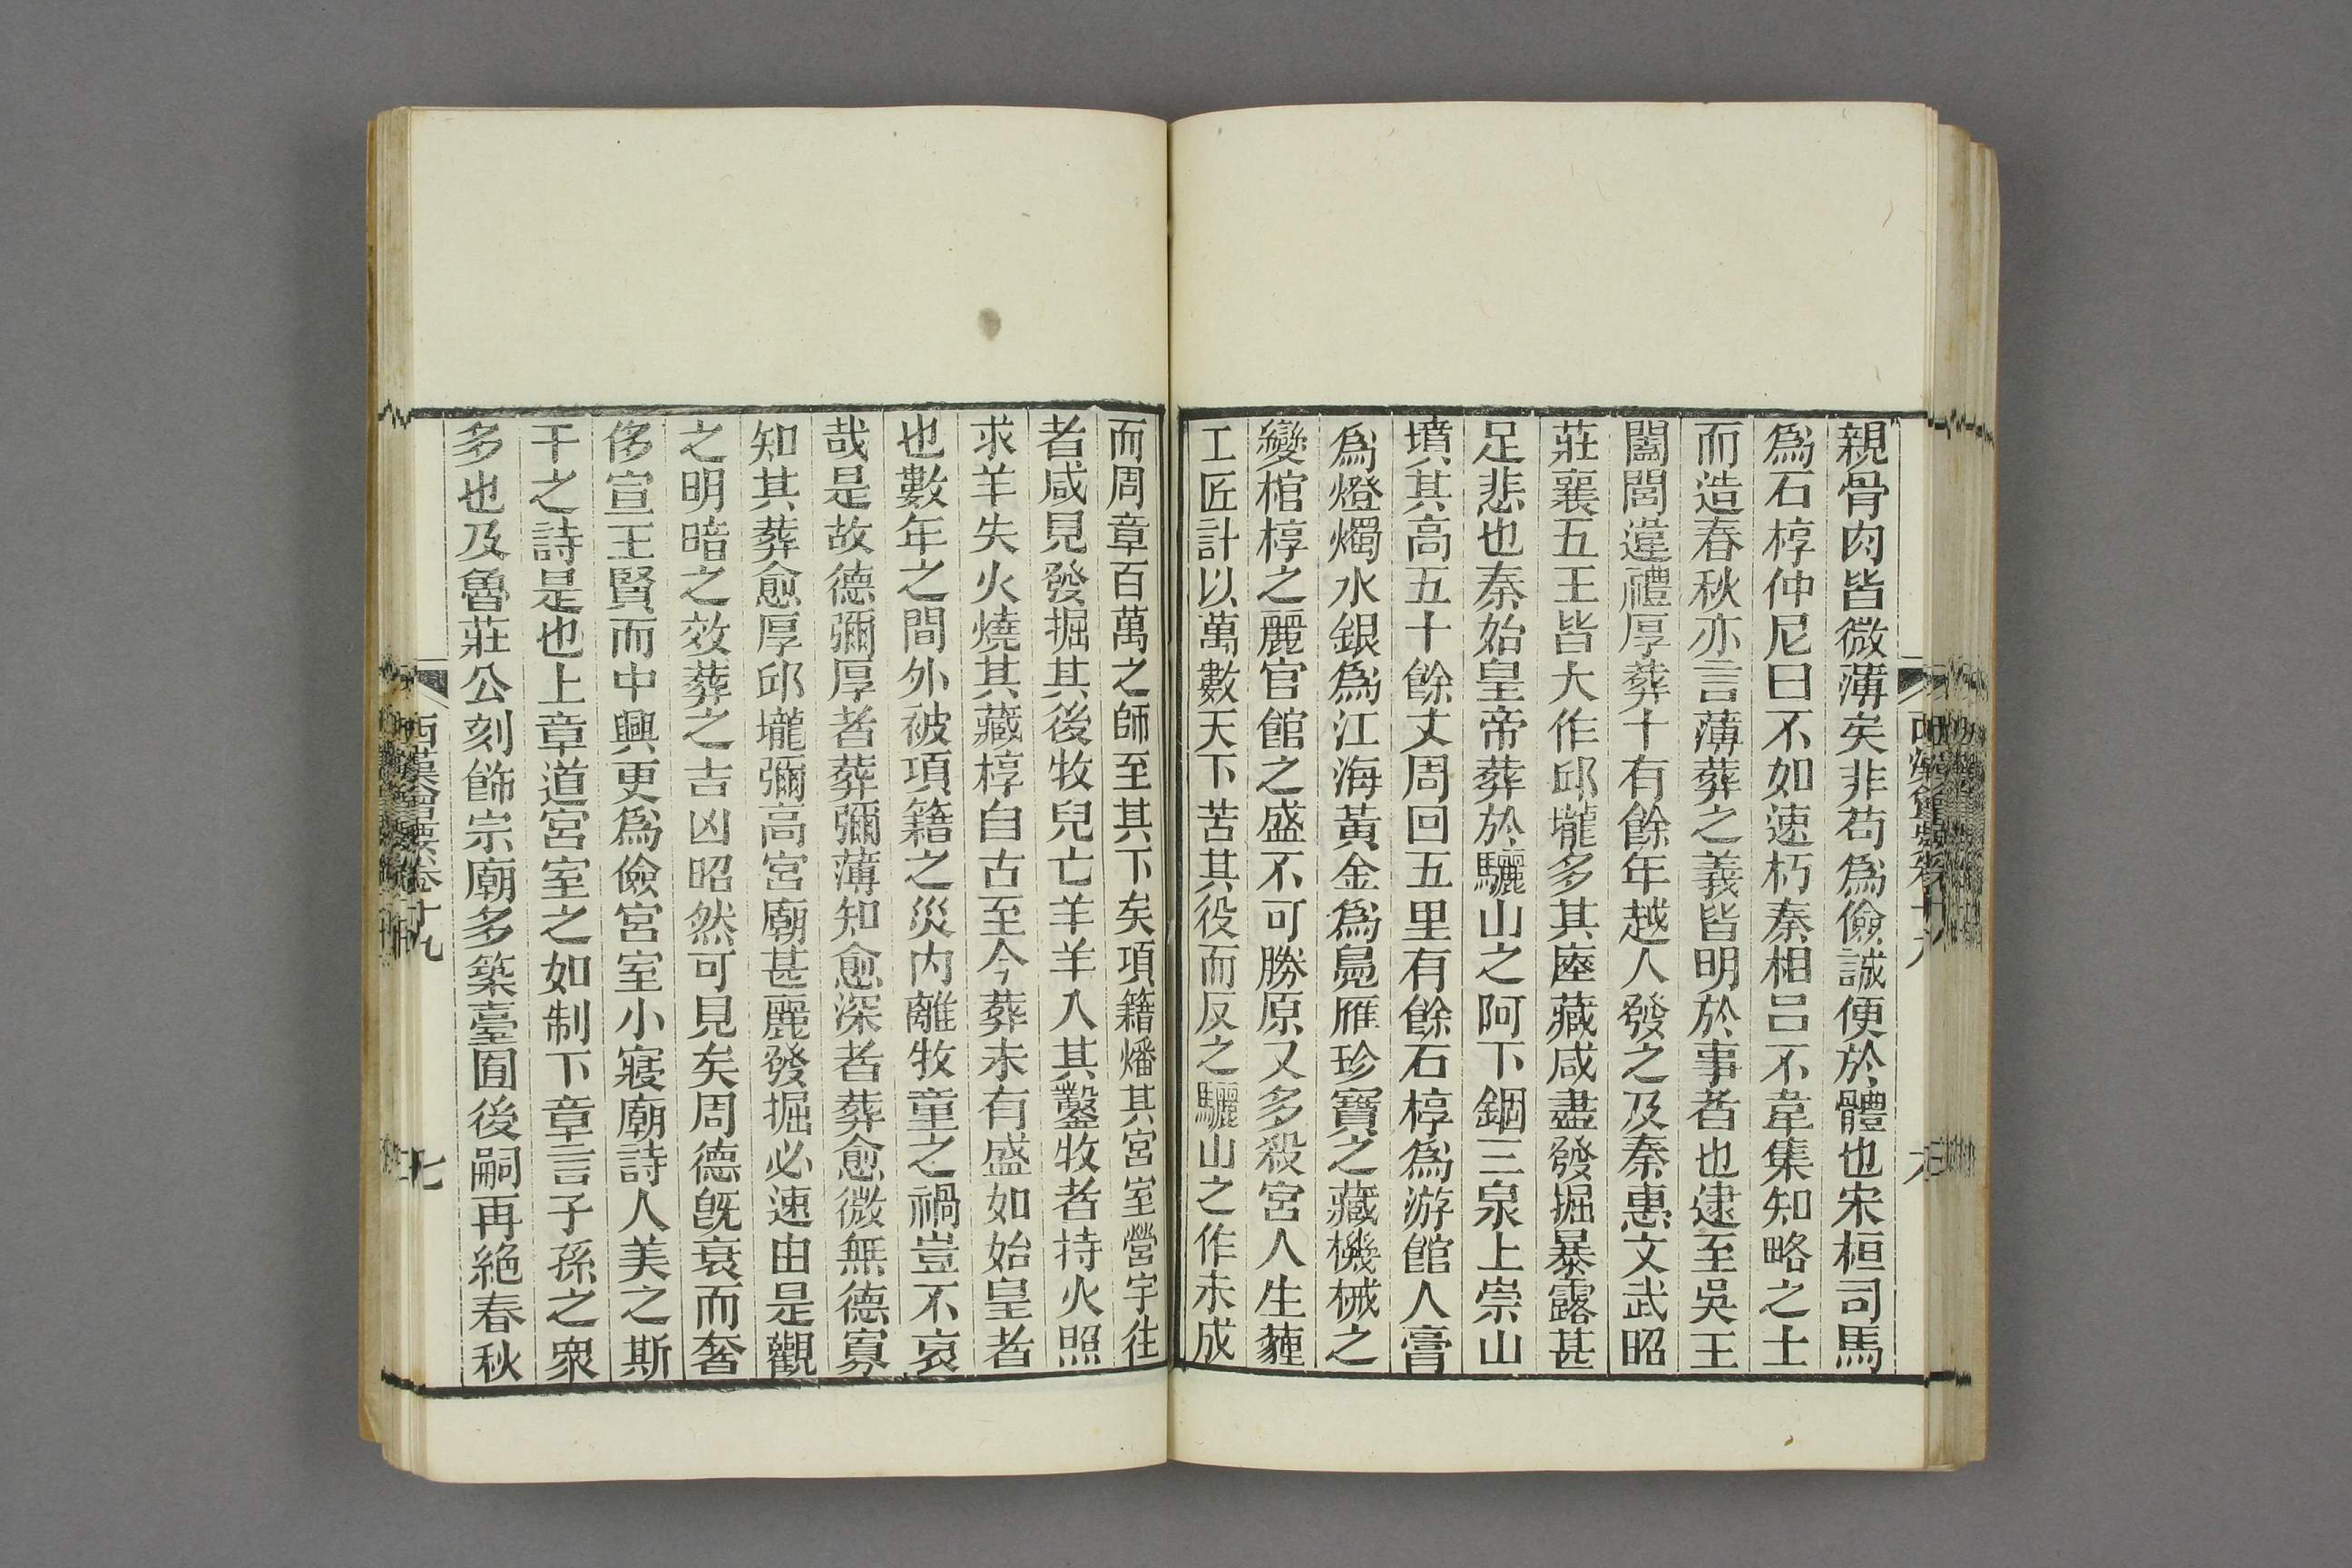 親骨肉皆微薄矣非苟爲儉誠便於體也宋桓司馬
爲石椁仲尼曰不如速朽秦相呂不韋集知略之士
而造春秋亦言薄葬之義皆明於事者也逮至吳王
闔閭違禮厚葬十有餘年越人發之及秦惠文武昭
莊襄五王皆大作邱壠多其瘞藏咸盡發掘暴露甚
足悲也秦始皇帝葬於驪山之阿下錮三泉上崇山
墳其高五十餘丈周回五里有餘石椁爲游館人膏
爲燈燭水銀爲江海黃金爲鳧雁珍寶之藏機械之
變棺椁之麗官館之盛不可勝原又多殺宮人生薶
工匠計以萬數天下苦其役而反之驪山之作未成
而周章百萬之師至其下矣項籍燔其宮室營宇往
者咸見發掘其後牧兒亡羊羊入其鑿牧者持火照
求羊失火燒其藏椁自古至今葬未有盛如始皇者
也數年之間外被項籍之災內離牧童之禍豈不哀
哉是故德彌厚者葬彌薄知愈深者葬愈微無德寡
知其葬愈厚邱壠彌高宮廟甚麗發掘必速由是觀
之明暗之效葬之吉凶昭然可見矣周德旣衰而奢
侈宣王賢而中興更爲儉宮室小寢廟詩人美之斯
干之詩是也上章道宮室之如制下章言子孫之衆
多也及魯莊公刻飾宗廟多築臺囿後嗣再絶春秋
西漢會要卷十九
七